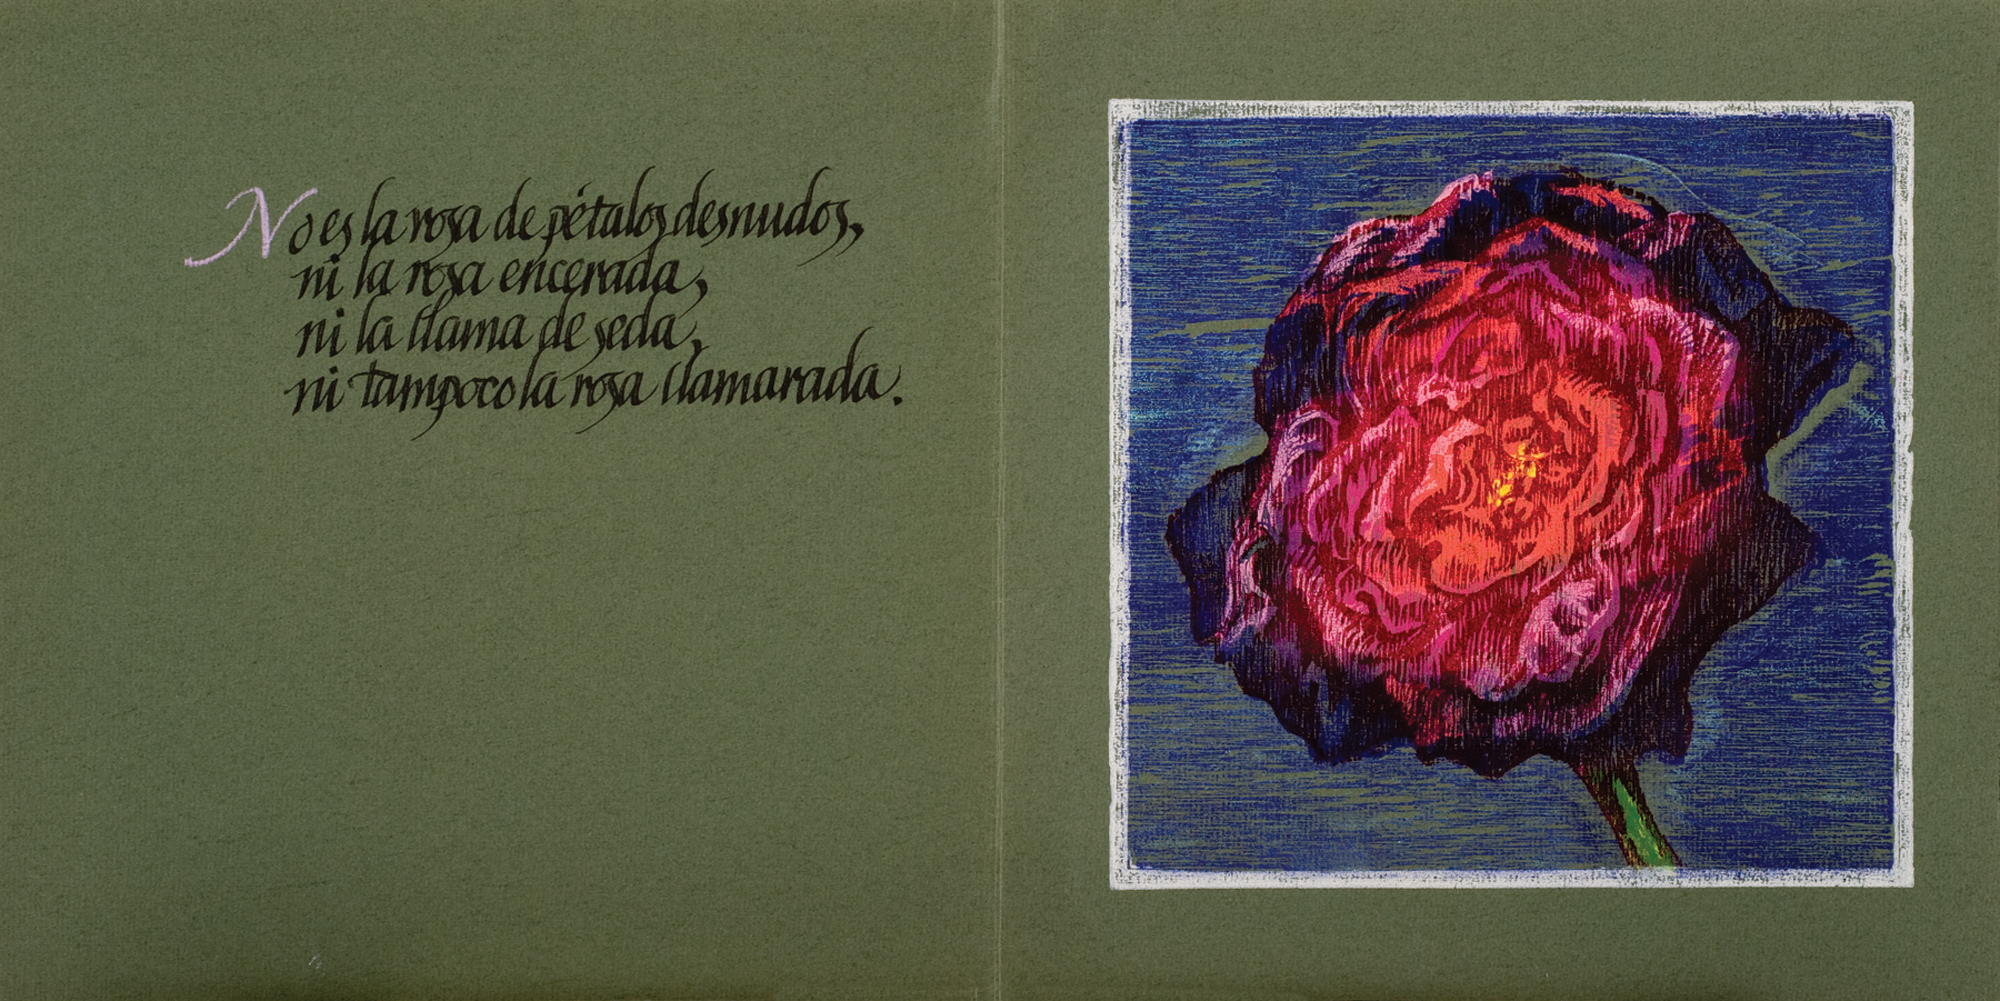 No es la rosa de pétalos desnudos,
ni la rosa encerada,
ni la llama de seda,
ni tampoco la rosa llamarada.